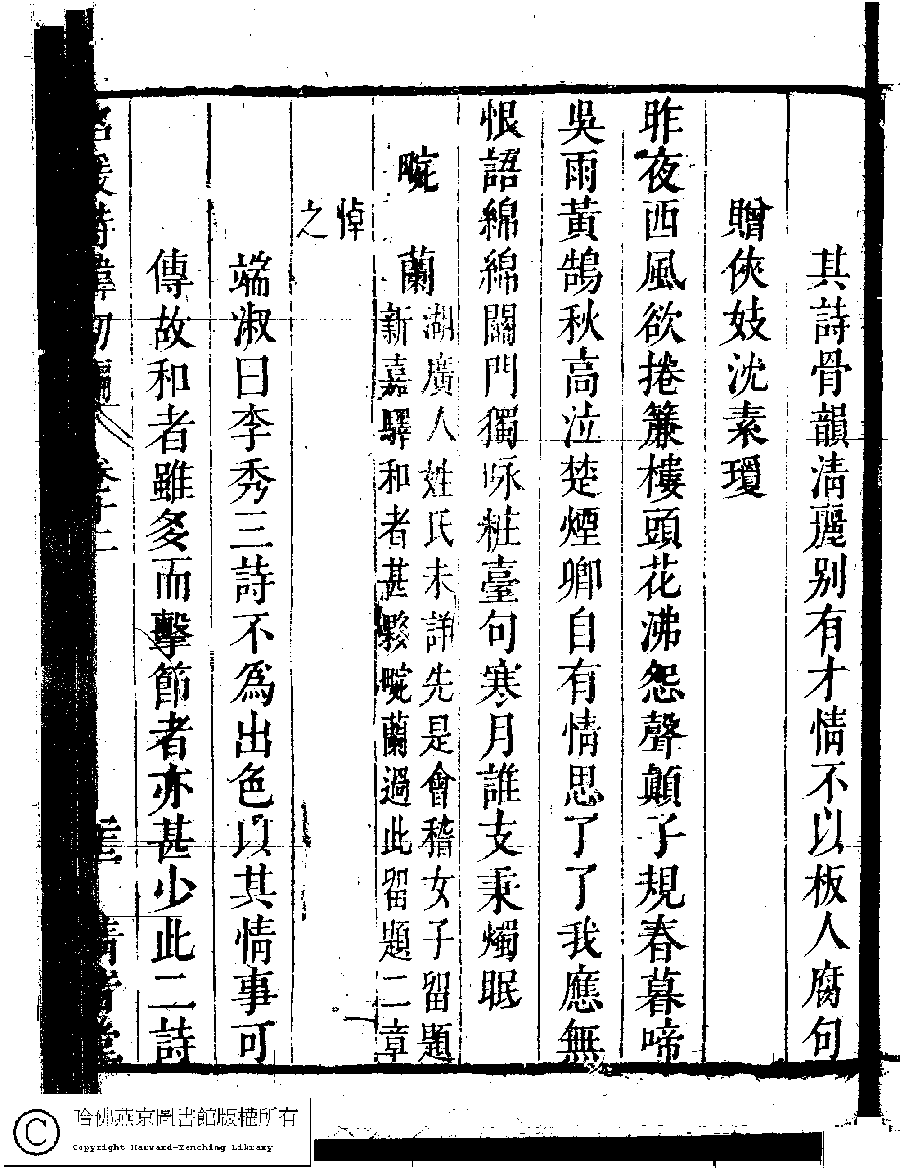 其詩骨韻清麗別有才情不以板人腐句
贈俠妓沈素瓊
昨夜西風欲捲簾樓頭花沸怨聲顛子規春暮啼
吳雨黃鵠秋高泣楚煙卿自有情思了了我應無
恨語綿綿關門獨咏粧臺句寒月誰支秉燭眠
畹蘭
湖廣人姓氏未詳先是會稽女子留題
新嘉驛和者甚夥畹蘭過此留題二章
悼
之
端淑曰李秀三詩不為出色以其情事可
傳故和者雖多而擊節者亦甚少此二詩
名媛詩緯初編 卷十二 清音堂
哈佛燕京圖書館版權所有
Copyright Harvard-Yenching Library